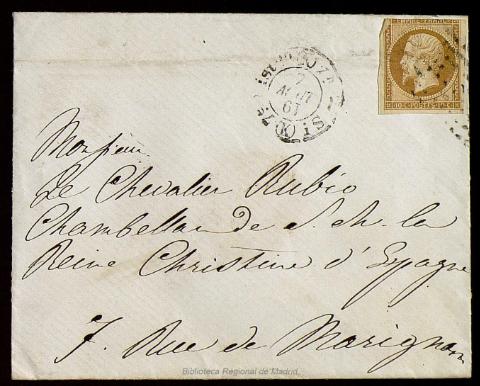 EMPIRE FRANC
10 C. POSTES 10 C.
7
AOUT
61
Monsieur
Le Chevalier Rubio
Chambellan de S. M. la
Reine Christine d'Espagne
7. Rue de Marignan
Biblioteca Regional de Madrid.